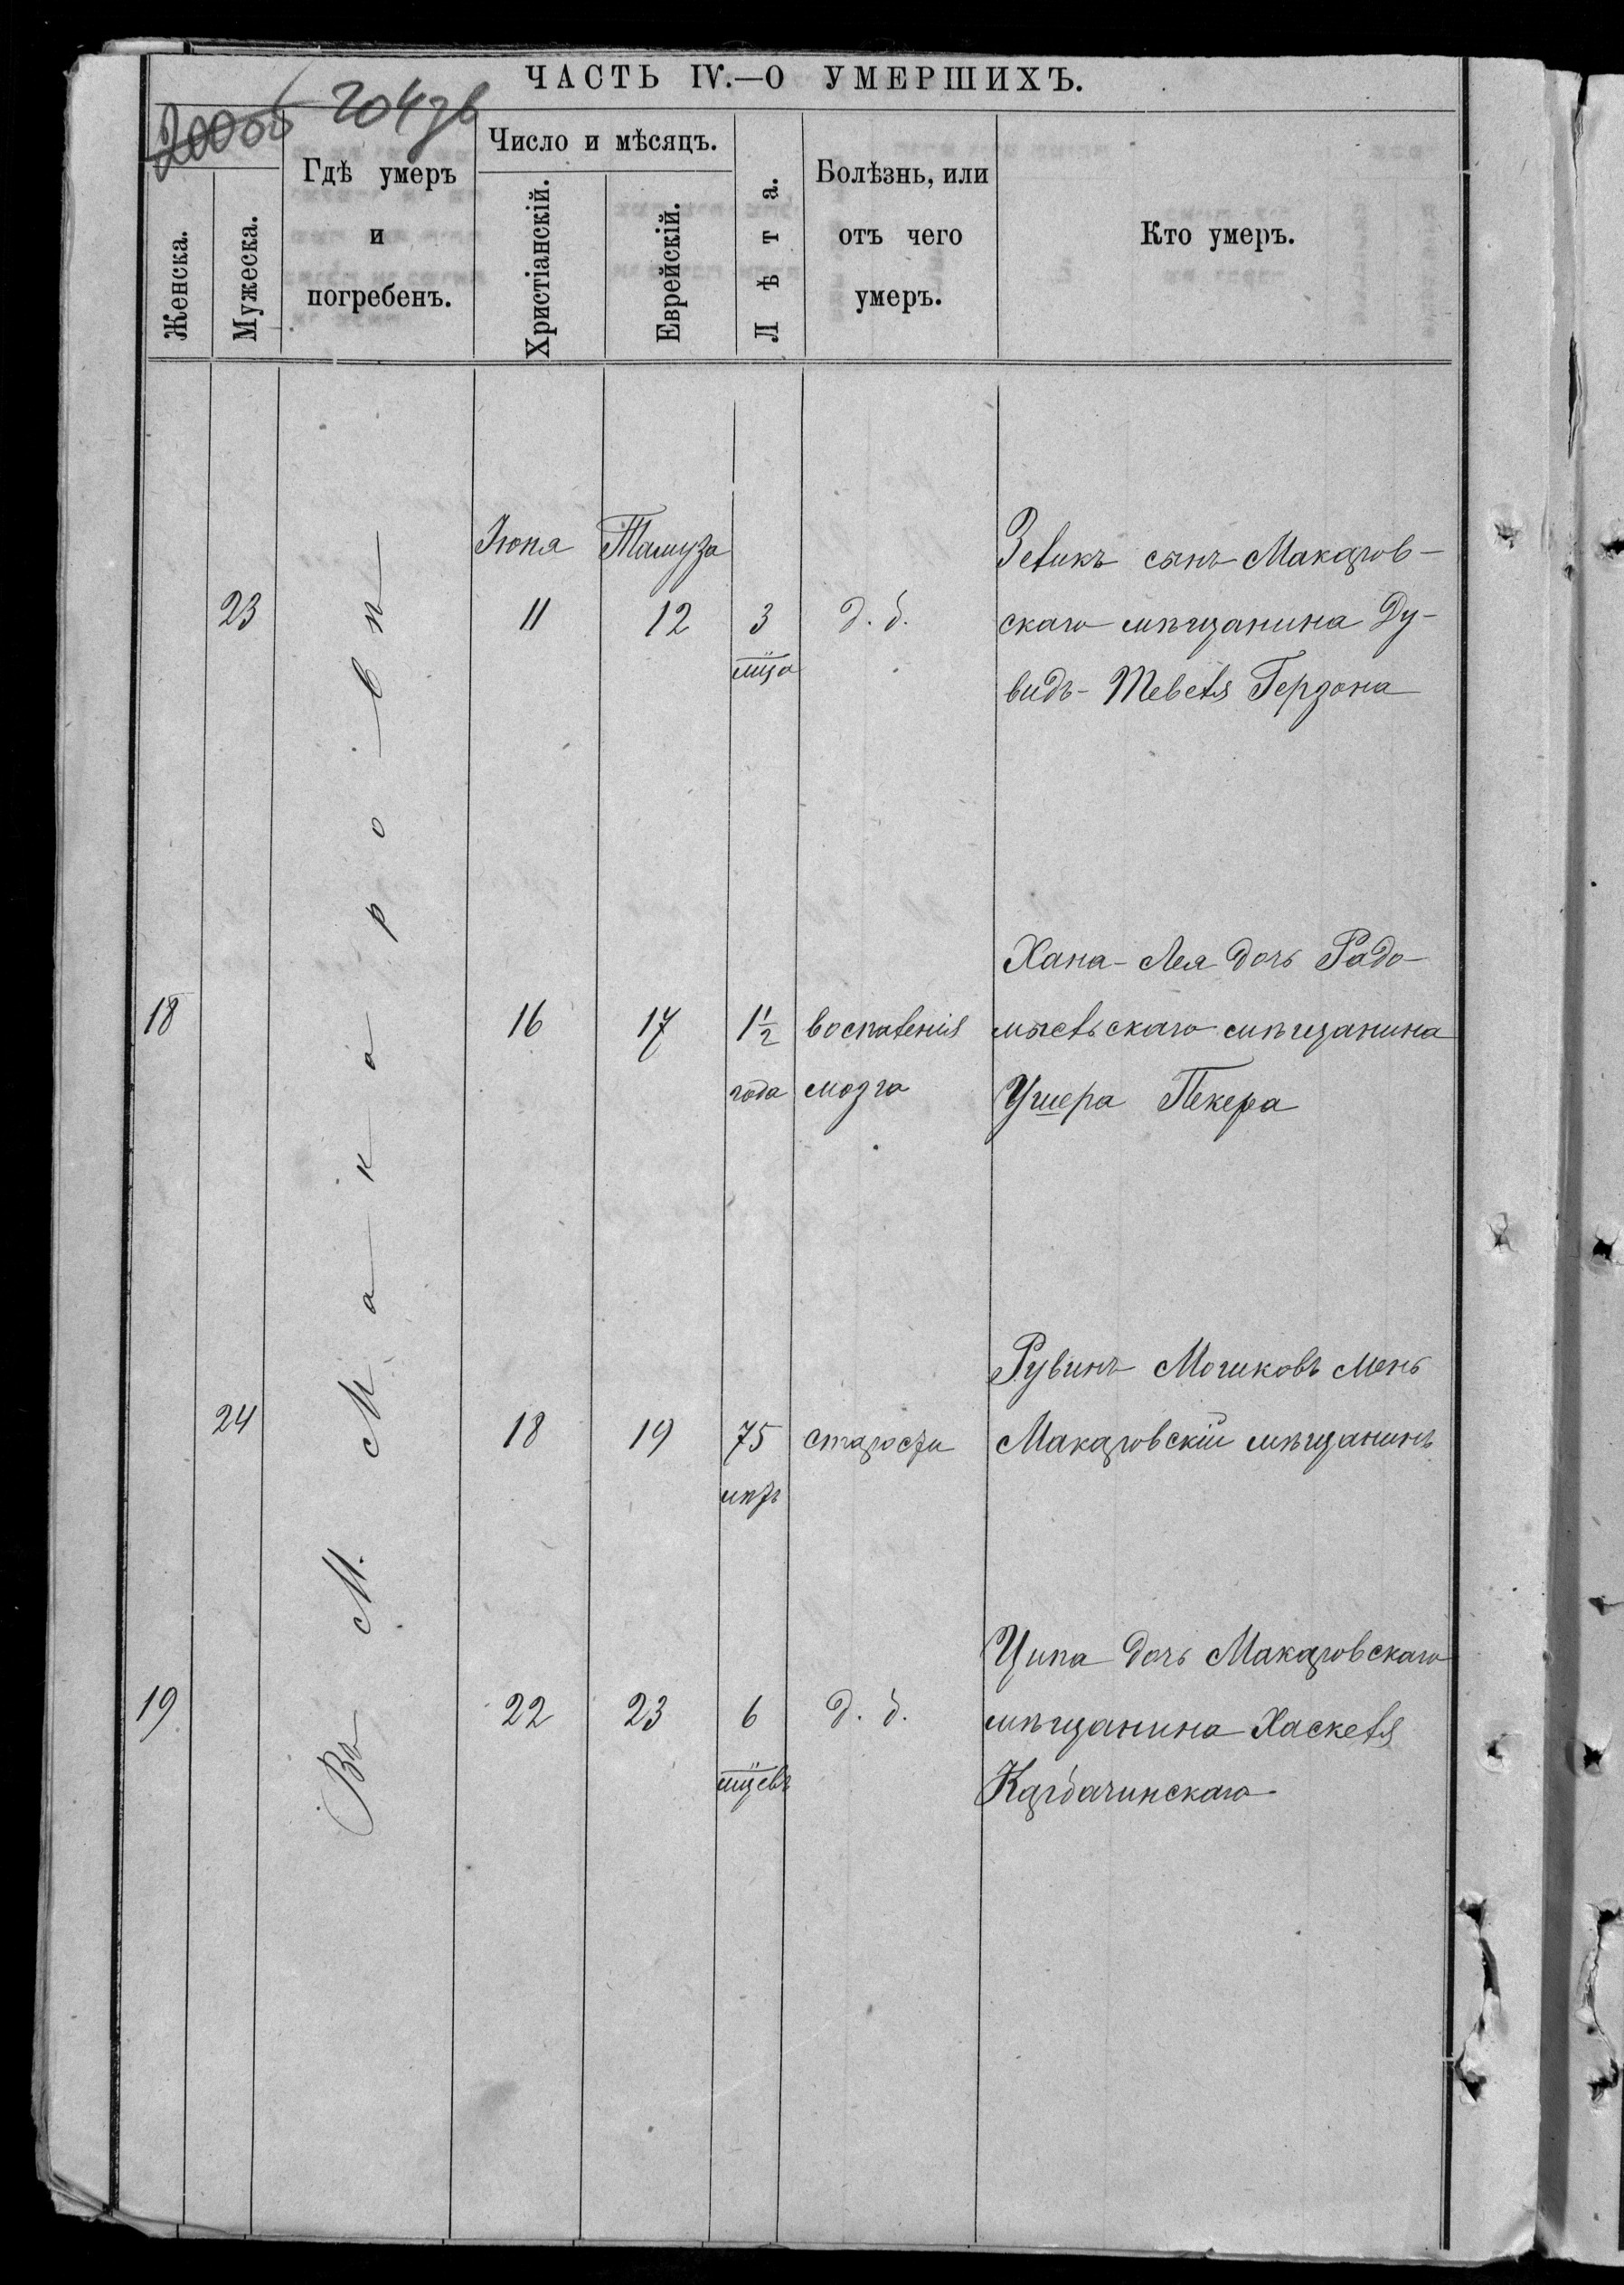 ЧАСТЬ IV.—О УМЕРШИХЪ.
204зв
Женска.
Мужеска.
Гдѣ умеръ
и
погребенъ.
Число и мѣсяцъ.
Христіанскій.
Еврейскій.
Лѣта.
Болѣзнь, или
отъ чего
умеръ.
Кто умеръ.
Въ М. Макаровѣ
Іюня Тамуза
23 11 12 3 д. б.
мца
Зеликъ сынъ Макаров-
скаго мѣщанина Ду-
видъ-Тевеля Герзона
18 16 17 1½ воспаленія
года мозга
Хана-Лея дочь Радо-
мысльскаго мѣщанина
Ушера Пекера
24 18 19 75 старости
лѣтъ
Рувинъ Мошковъ Мень
Макаровскій мѣщанинъ
19 22 23 6 д. б.
мцевъ
Ципа дочь Макаровскаго
мѣщанина Хаскеля
Карбачинскаго